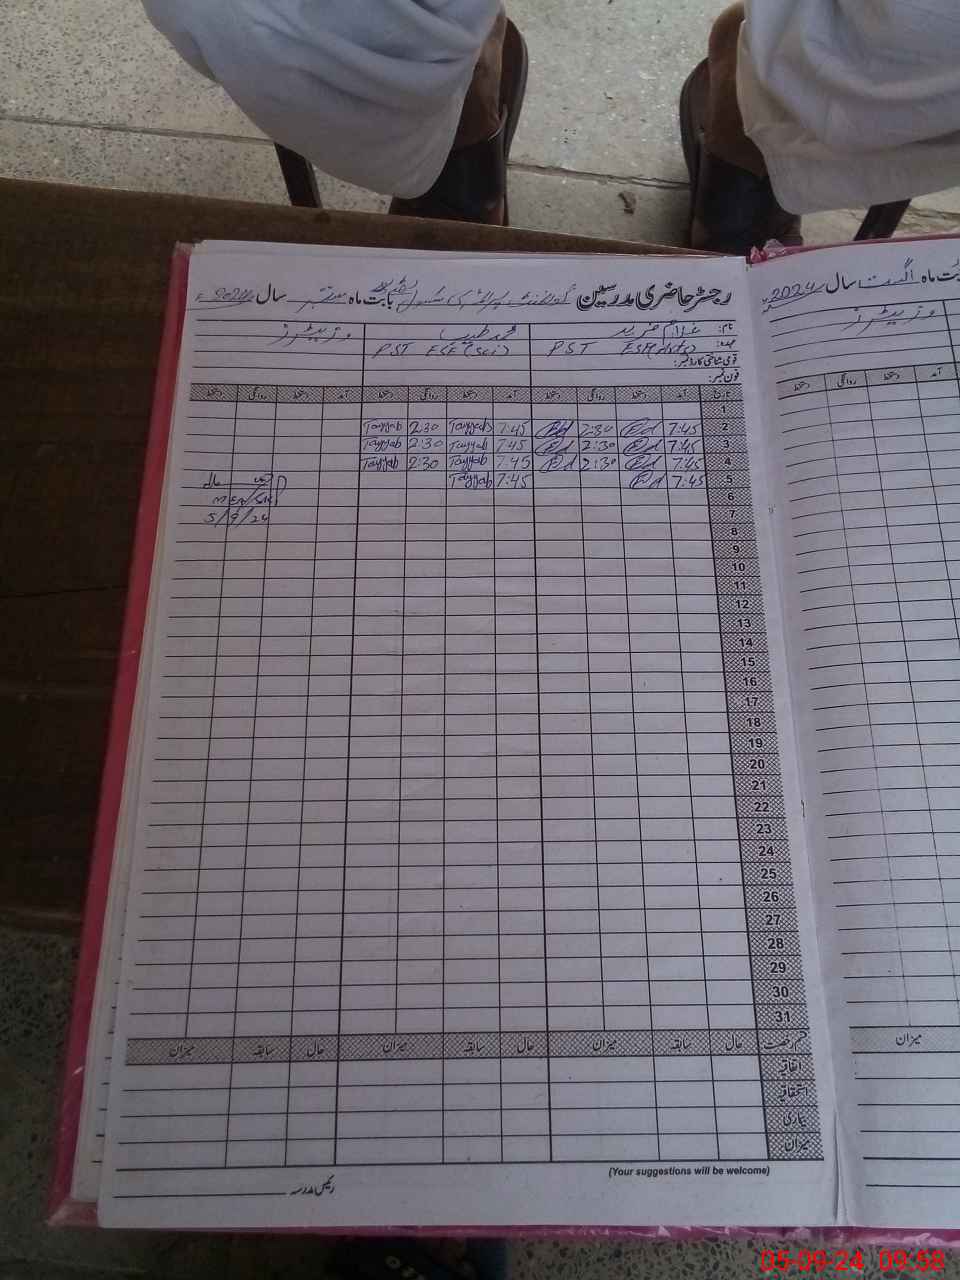 رجسٹر حاضری مدرسین گورنمنٹ پرائمری سکول بابت ماہ ستمبر سال 2024ء
نام: غلام فرید محمد طیب وزیٹرز
عہدہ: PST ESE(Arts) PST ESE(Sci)
قومی شناختی کارڈ نمبر:
فون نمبر:
تاریخ آمد دستخط روانگی دستخط آمد دستخط روانگی دستخط آمد دستخط روانگی دستخط
1
2 7:45 2:30 7:45 Tayyab 2:30 Tayyab
3 7:45 2:30 7:45 Tayyab 2:30 Tayyab
4 7:45 2:30 7:45 Tayyab 2:30 Tayyab
5 7:45 7:45 Tayyab
6
7 5/9/24
8
9
10
11
12
13
14
15
16
17
18
19
20
21
22
23
24
25
26
27
28
29
30
31
قسم رخصت حال سابقہ میزان حال سابقہ میزان حال سابقہ میزان
اتفاقیہ
استحقاقیہ
بیماری
میزان
(Your suggestions will be welcome)
رئیس مدرسہ
بابت ماہ اگست سال 2024ء
وزیٹرز
آمد دستخط روانگی دستخط
میزان
05-09-24 09:58